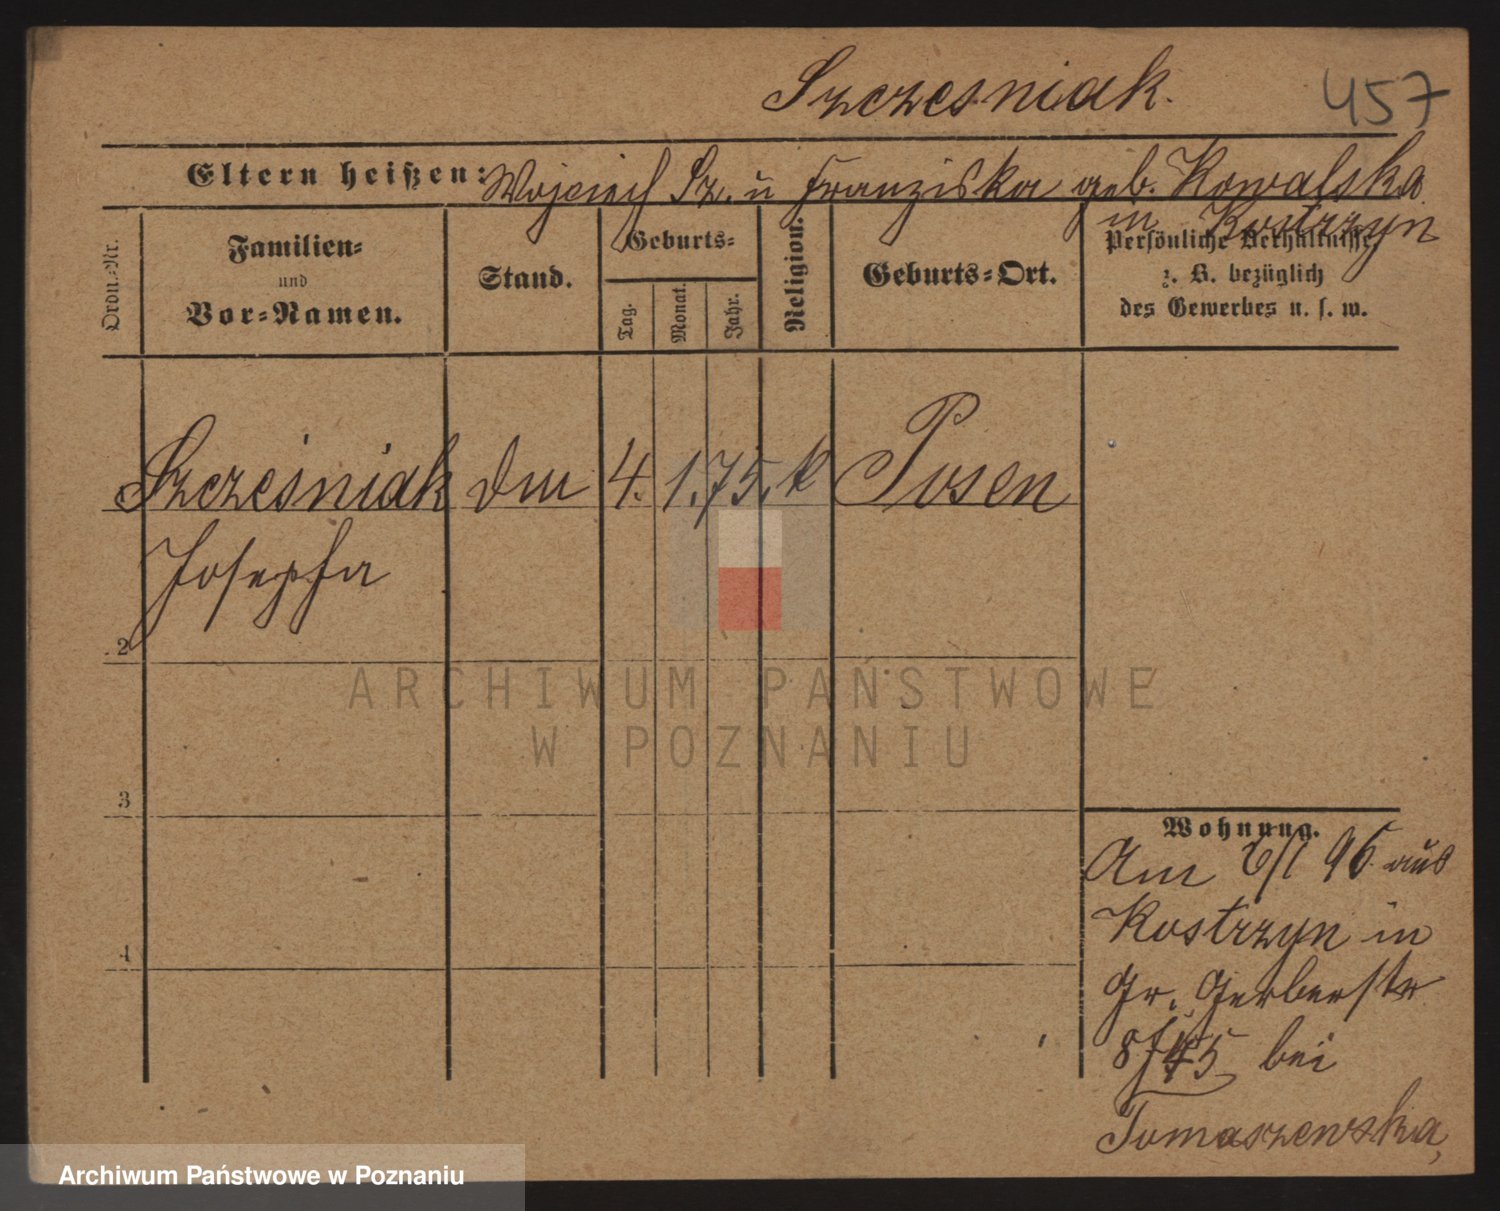 Szczesniak.
457
Eltern heißen: Wojciech Sz. u Franziska geb. Kowalska
in Kostrzyn
Ordn.-Nr.
Familien-
und
Vor-Namen.
Stand.
Geburts-
Tag.
Monat.
Jahr.
Religion.
Geburts-Ort.
Persönliche Verhältnisse,
z. B. bezüglich
des Gewerbes u. s. w.
Szcześniak 4. 1. 75. k Posen
Josepha
2
3
4
Wohnung.
Am 6/1 96 aus
Kostrzyn in
Gr. Gerberstr
bei
Tomaszewska,
ARCHIWUM PAŃSTWOWE
W POZNANIU
Archiwum Państwowe w Poznaniu